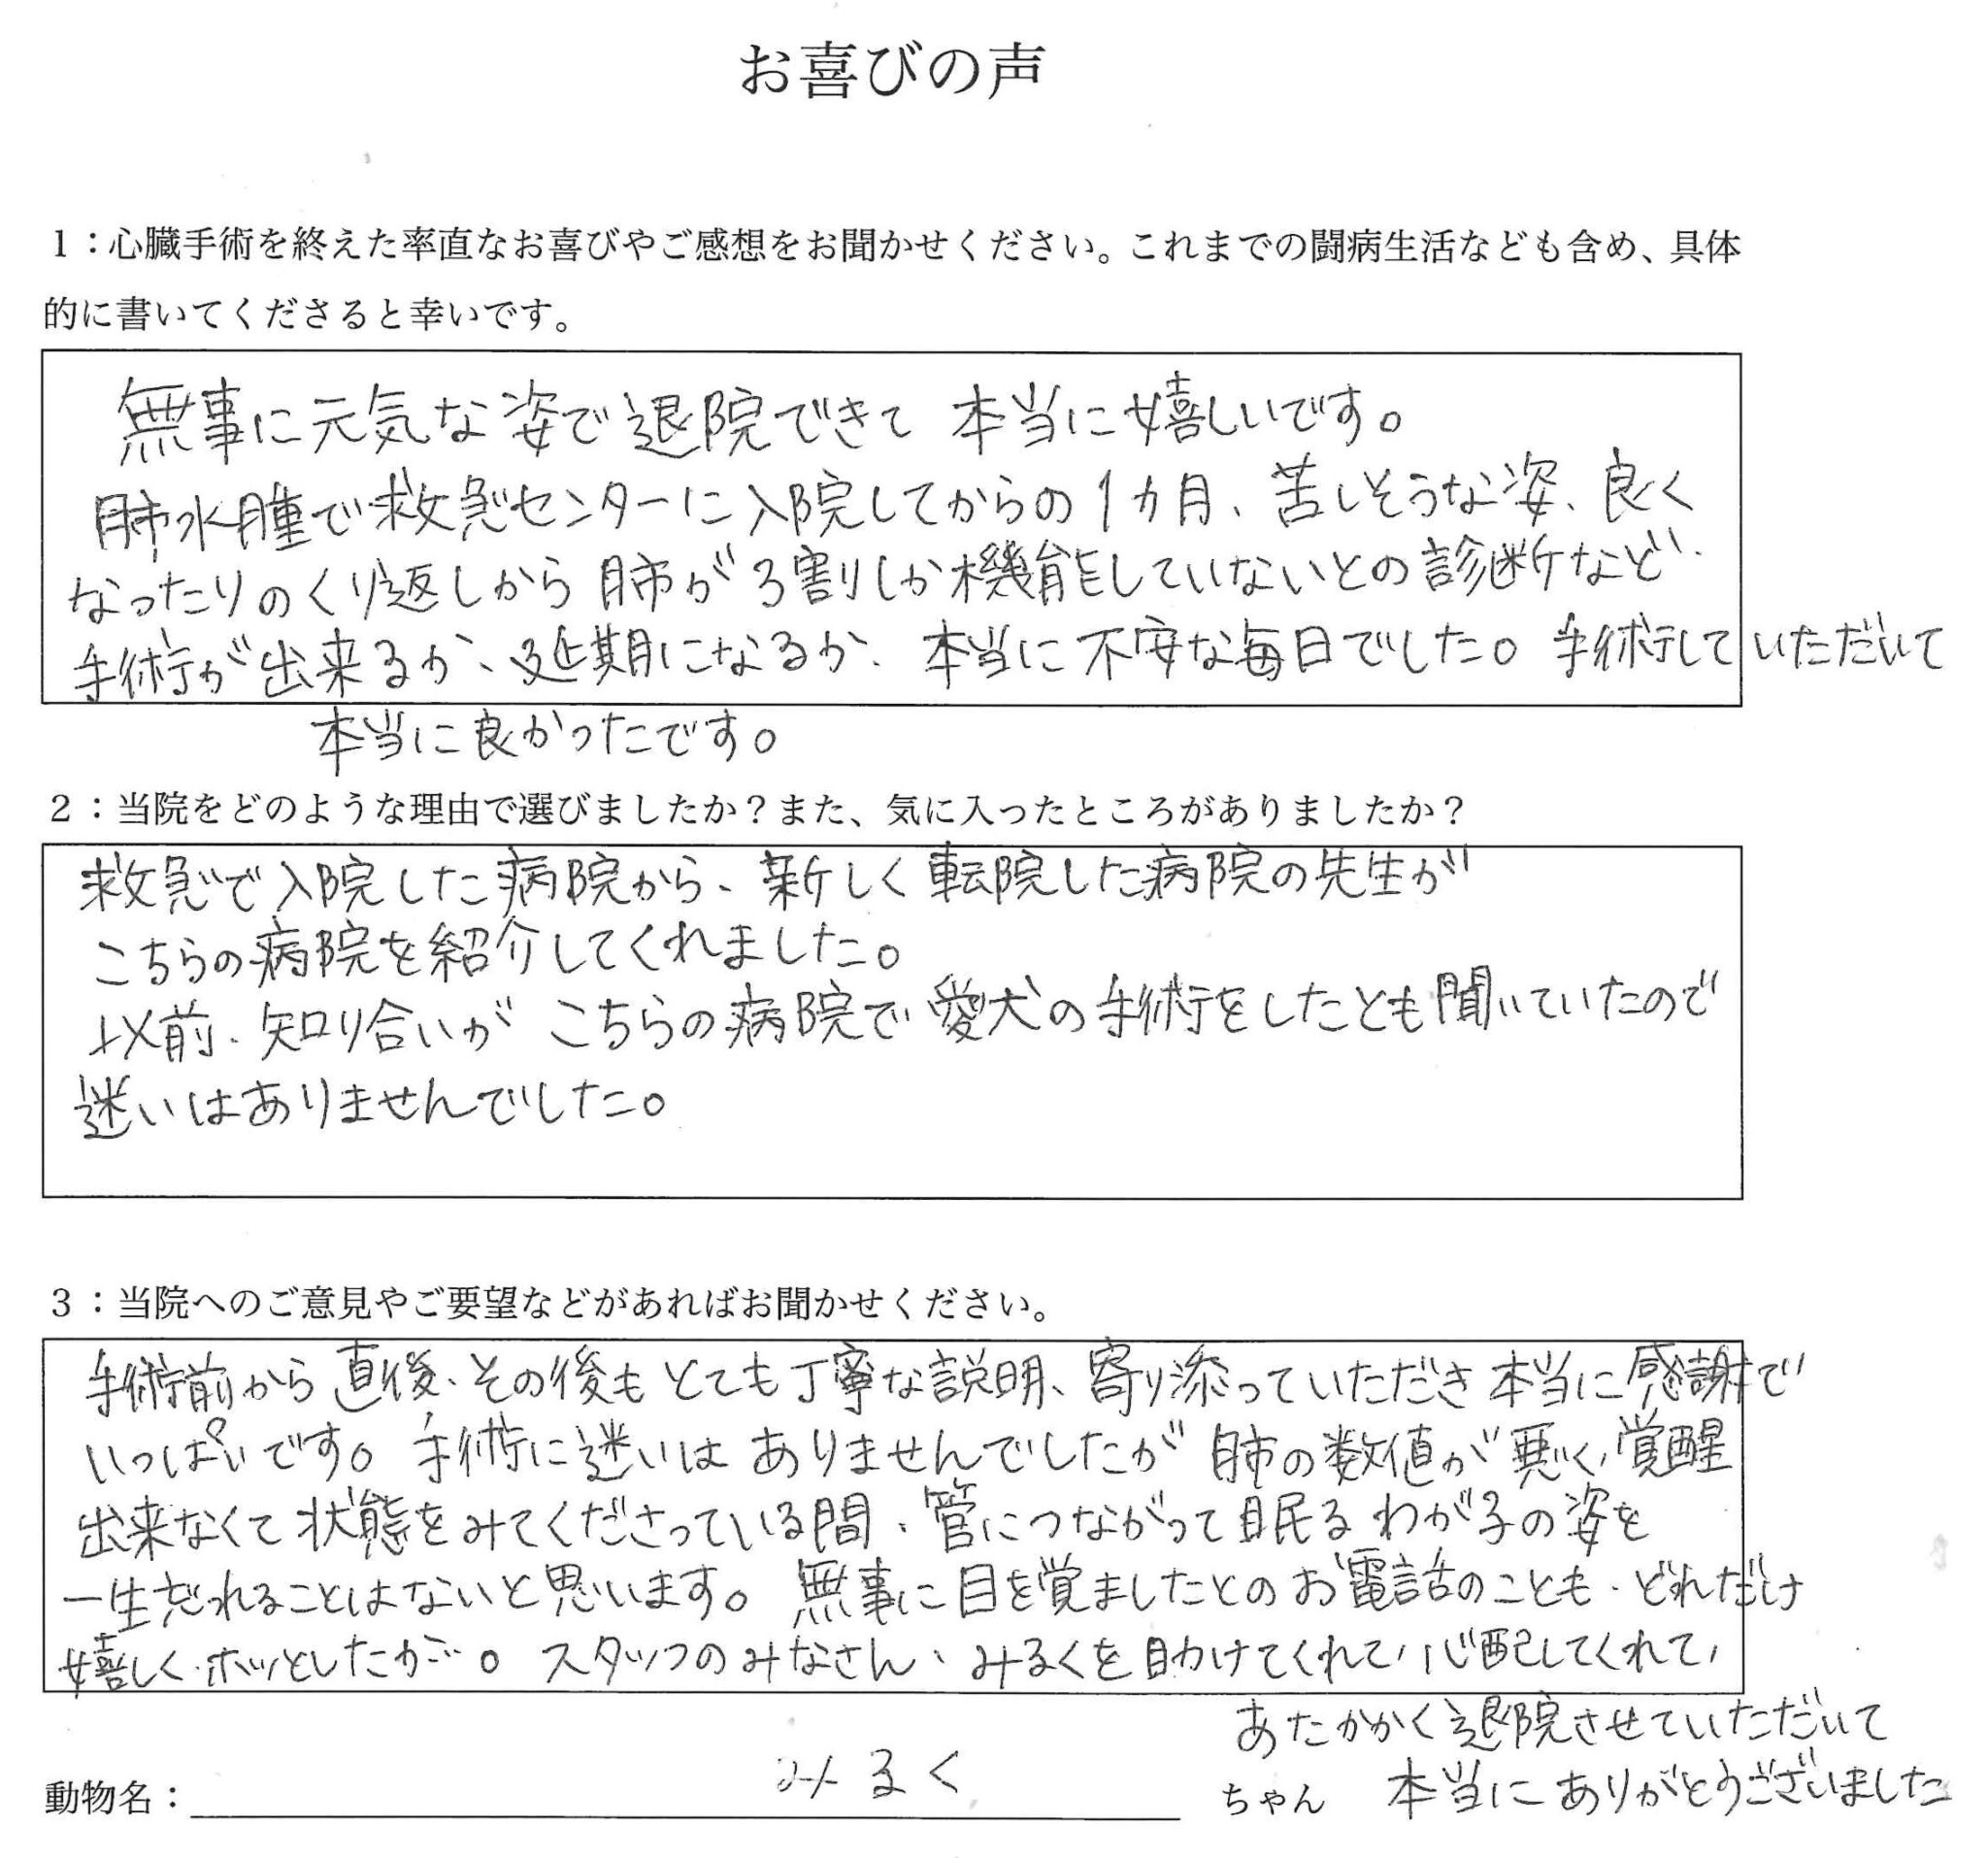 お喜びの声
１：心臓手術を終えた率直なお喜びやご感想をお聞かせください。これまでの闘病生活なども含め、具体
的に書いてくださると幸いです。
無事に元気な姿で退院できて 本当に嬉しいです。
肺水腫で救急センターに入院してからの1カ月、苦しそうな姿、良く
なったりのくり返しから 肺が3割しか機能していないとの診断など、
手術が出来るか、延期になるか、本当に不安な毎日でした。手術していただいて
本当に良かったです。
２：当院をどのような理由で選びましたか？また、気に入ったところがありましたか？
救急で入院した病院から、新しく転院した病院の先生が
こちらの病院を紹介してくれました。
以前、知り合いが こちらの病院で愛犬の手術をしたとも聞いていたので
迷いはありませんでした。
３：当院へのご意見やご要望などがあればお聞かせください。
手術前から直後、その後もとても丁寧な説明、寄り添っていただき本当に感謝で
いっぱいです。手術に迷いは ありませんでしたが 肺の数値が悪く、覚醒
出来なくて状態をみてくださっている間、管につながって眠るわが子の姿を
一生忘れることはないと思います。無事に目を覚ましたとのお電話のことも、どれだけ
嬉しく、ホッとしたか…。スタッフのみなさん、みるくを助けてくれて、心配してくれて、
あたたかく退院させていただいて
本当にありがとうございました
動物名： みるく ちゃん